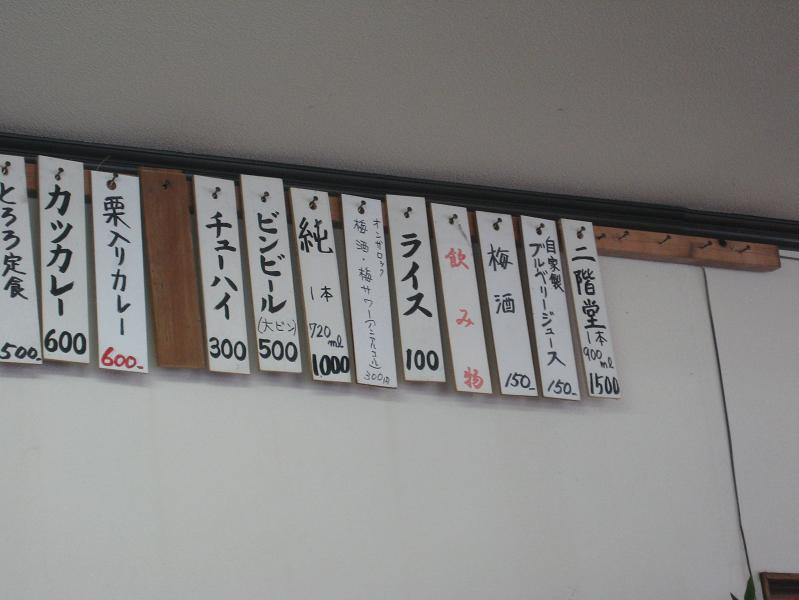 とろろ定食
500-
カツカレー
600
栗入りカレー
600-
チューハイ
300
ビンビール
(大ビン)
500
純
1本
720ml
1000
オンザロック
梅酒・梅サワー(アンアルコール)
300円
ライス
100
飲み物
梅酒
150-
自家製
ブルベリージュース
150-
二階堂
1本
900ml
1500